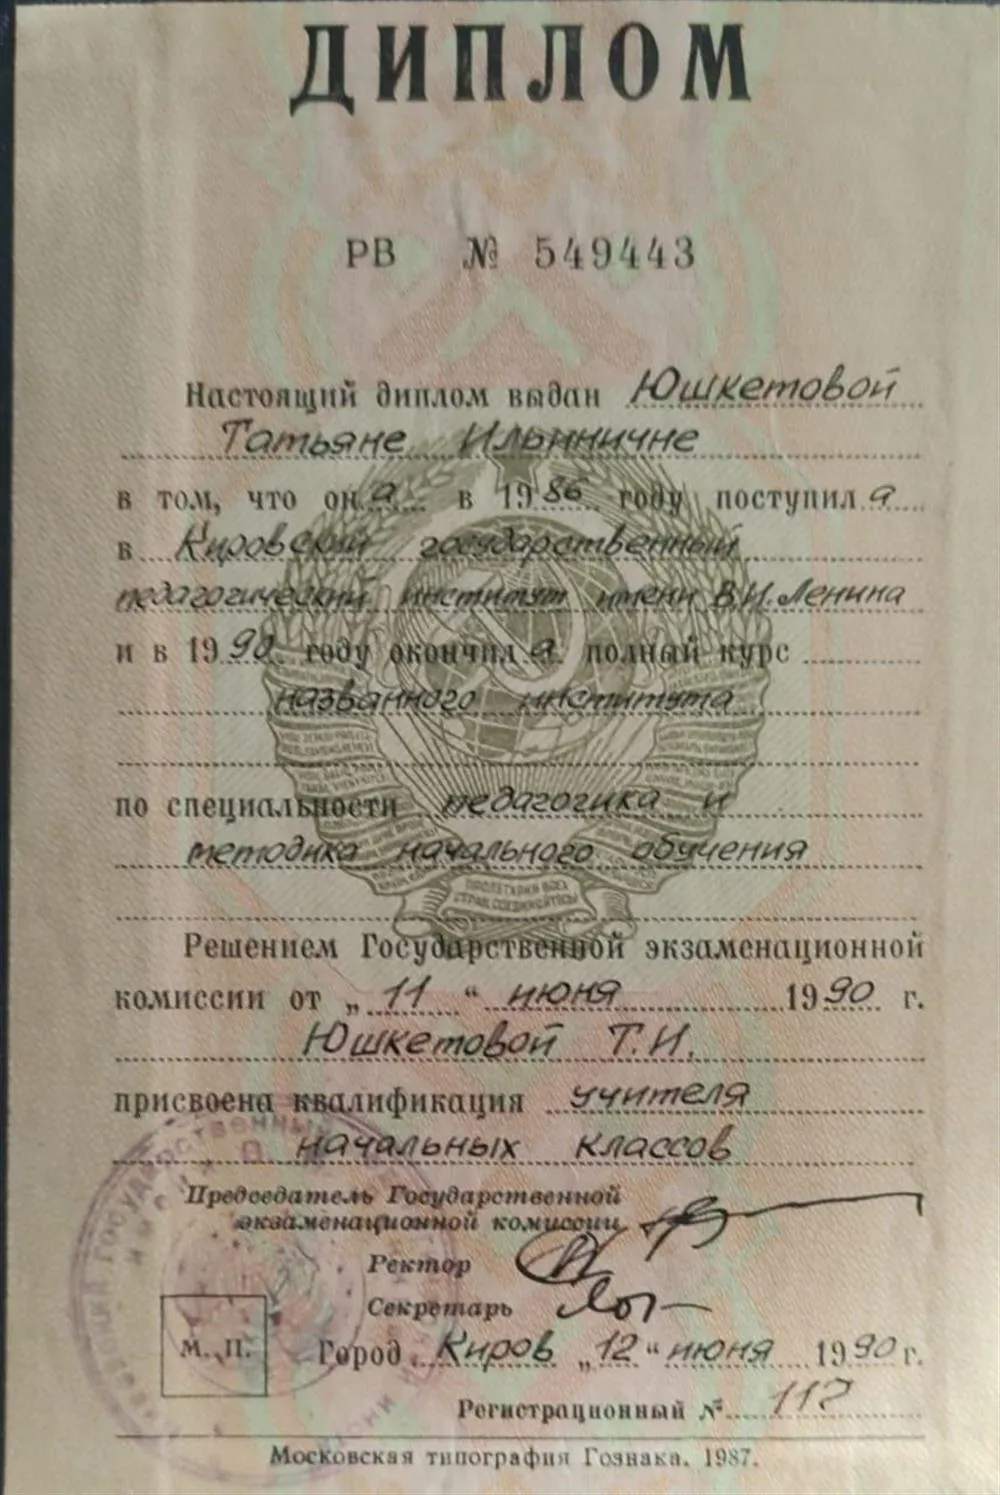 ДИПЛОМ
РВ № 549443
Настоящий диплом выдан Юшкетовой
Татьяне Ильиничне
в том, что она в 1986 году поступила
в Кировский государственный
педагогический институт имени В.И. Ленина
и в 1990 году окончила полный курс
названного института
по специальности педагогика и
методика начального обучения
Решением Государственной экзаменационной
комиссии от „11“ июня 1990 г.
Юшкетовой Т.И.
присвоена квалификация учителя
начальных классов
Председатель Государственной
экзаменационной комиссии
Ректор
Секретарь
М. П.
Город Киров „12“ июня 1990 г.
Регистрационный №
Московская типография Гознака. 1987.